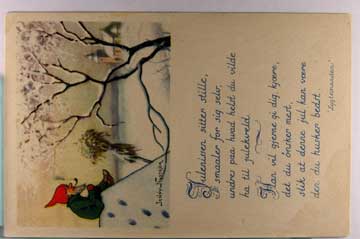 "Lyslemanden"
Julenissen sitter stille,
smaaler for sig selv,
undres paa hvad helst du vilde
ha til julekveld.
Han vil gjerne gi dig kjære,
det du ønsker mest,
slik at denne jul kan være
den du husker bedst.